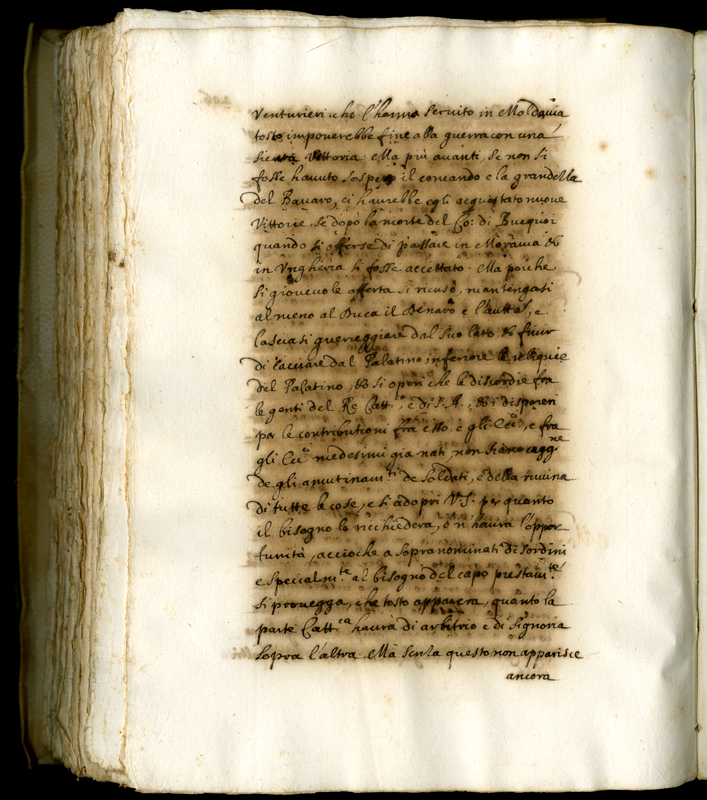 Venturieri che l'hanno servito in Moldavia
tosto imponerebbe fine alla guerra con una
Vittoria. Ma più avanti, se non si
fosse havuto sospetto il comando e la grandezza
del Bavaro, ci haurebbe egli acquistato nuove
Vittorie, se dopo la morte del Co: di Bucquoi
quando si offerse di passare in Moravia &
in Ungheria si fosse accettato. Ma poiche
si giovevole offerta si ricusò, mantengasi
almeno al Duca il Denaro e l'autta, e
lasciasi guerreggiare dal suo lato, & finir
di cacciare dal Palatino inferiore le reliquie
del Palatino, & si opri che le discordie fra
le genti del Re Catt.co, e di S. A., & i dispareri
per le contributioni fra esso, e gli Ecc.i, e fra
gli Ecc.i medesimi gia nati non siano cagg.ne
de gli amutinam.ti de Soldati, e della ruuina
di tutte le cose, e si adopri V.S. per quanto
il bisogno lo ricchiederà, ò n'haurà l'oppor
tunità, accioche a sopranominati disordini
e specialm.te al bisogno del capo prestam.te
si provegga, che tosto apparerà, quanto la
parte Catt.ca haurà di arbitrio e di Signoria
sopra l'altra. Ma senza questo non apparisce
ancora